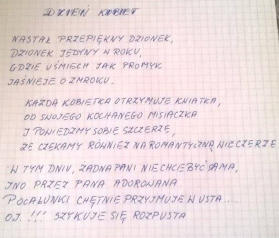 DZIEŃ KOBIET
NASTAŁ PRZEPIĘKNY DZIONEK,
DZIONEK JEDYNY W ROKU,
GDZIE UŚMIECH JAK PROMYK
JAŚNIEJE O ZMROKU.
KAŻDA KOBIETKA OTRZYMUJE KWIATKA,
OD SWOJEGO KOCHANEGO MISIACZKA
I POWIEDZMY SOBIE SZCZERZE,
ŻE CZEKAMY RÓWNIEŻ NA ROMANTYCZNĄ WIECZERZE
W TYM DNIU, ŻADNA PANI NIE CHCE BYĆ SAMA,
INO PRZEZ PANA ADOROWANA
POCAŁUNKI CHĘTNIE PRZYJMUJE W USTA...
OJ !!! SZYKUJE SIĘ ROZPUSTA